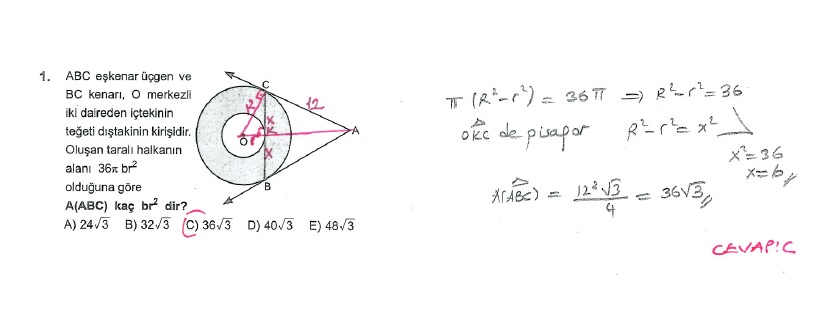 1. ABC eşkenar üçgen ve
BC kenarı, O merkezli
iki daireden içtekinin
teğeti dıştakinin kirişidir.
Oluşan taralı halkanın
alanı 36π br²
olduğuna göre
A(ABC) kaç br² dir?
A) 24√3 B) 32√3 C) 36√3 D) 40√3 E) 48√3
C
R
12
x
K
A
O
r
x
B
π (R²-r²) = 36π ⇒ R²-r²=36
OKC de pisagor R²-r²=x²
x²=36
x=6
A(ABC) = 12²√3 / 4 = 36√3
CEVAP:C